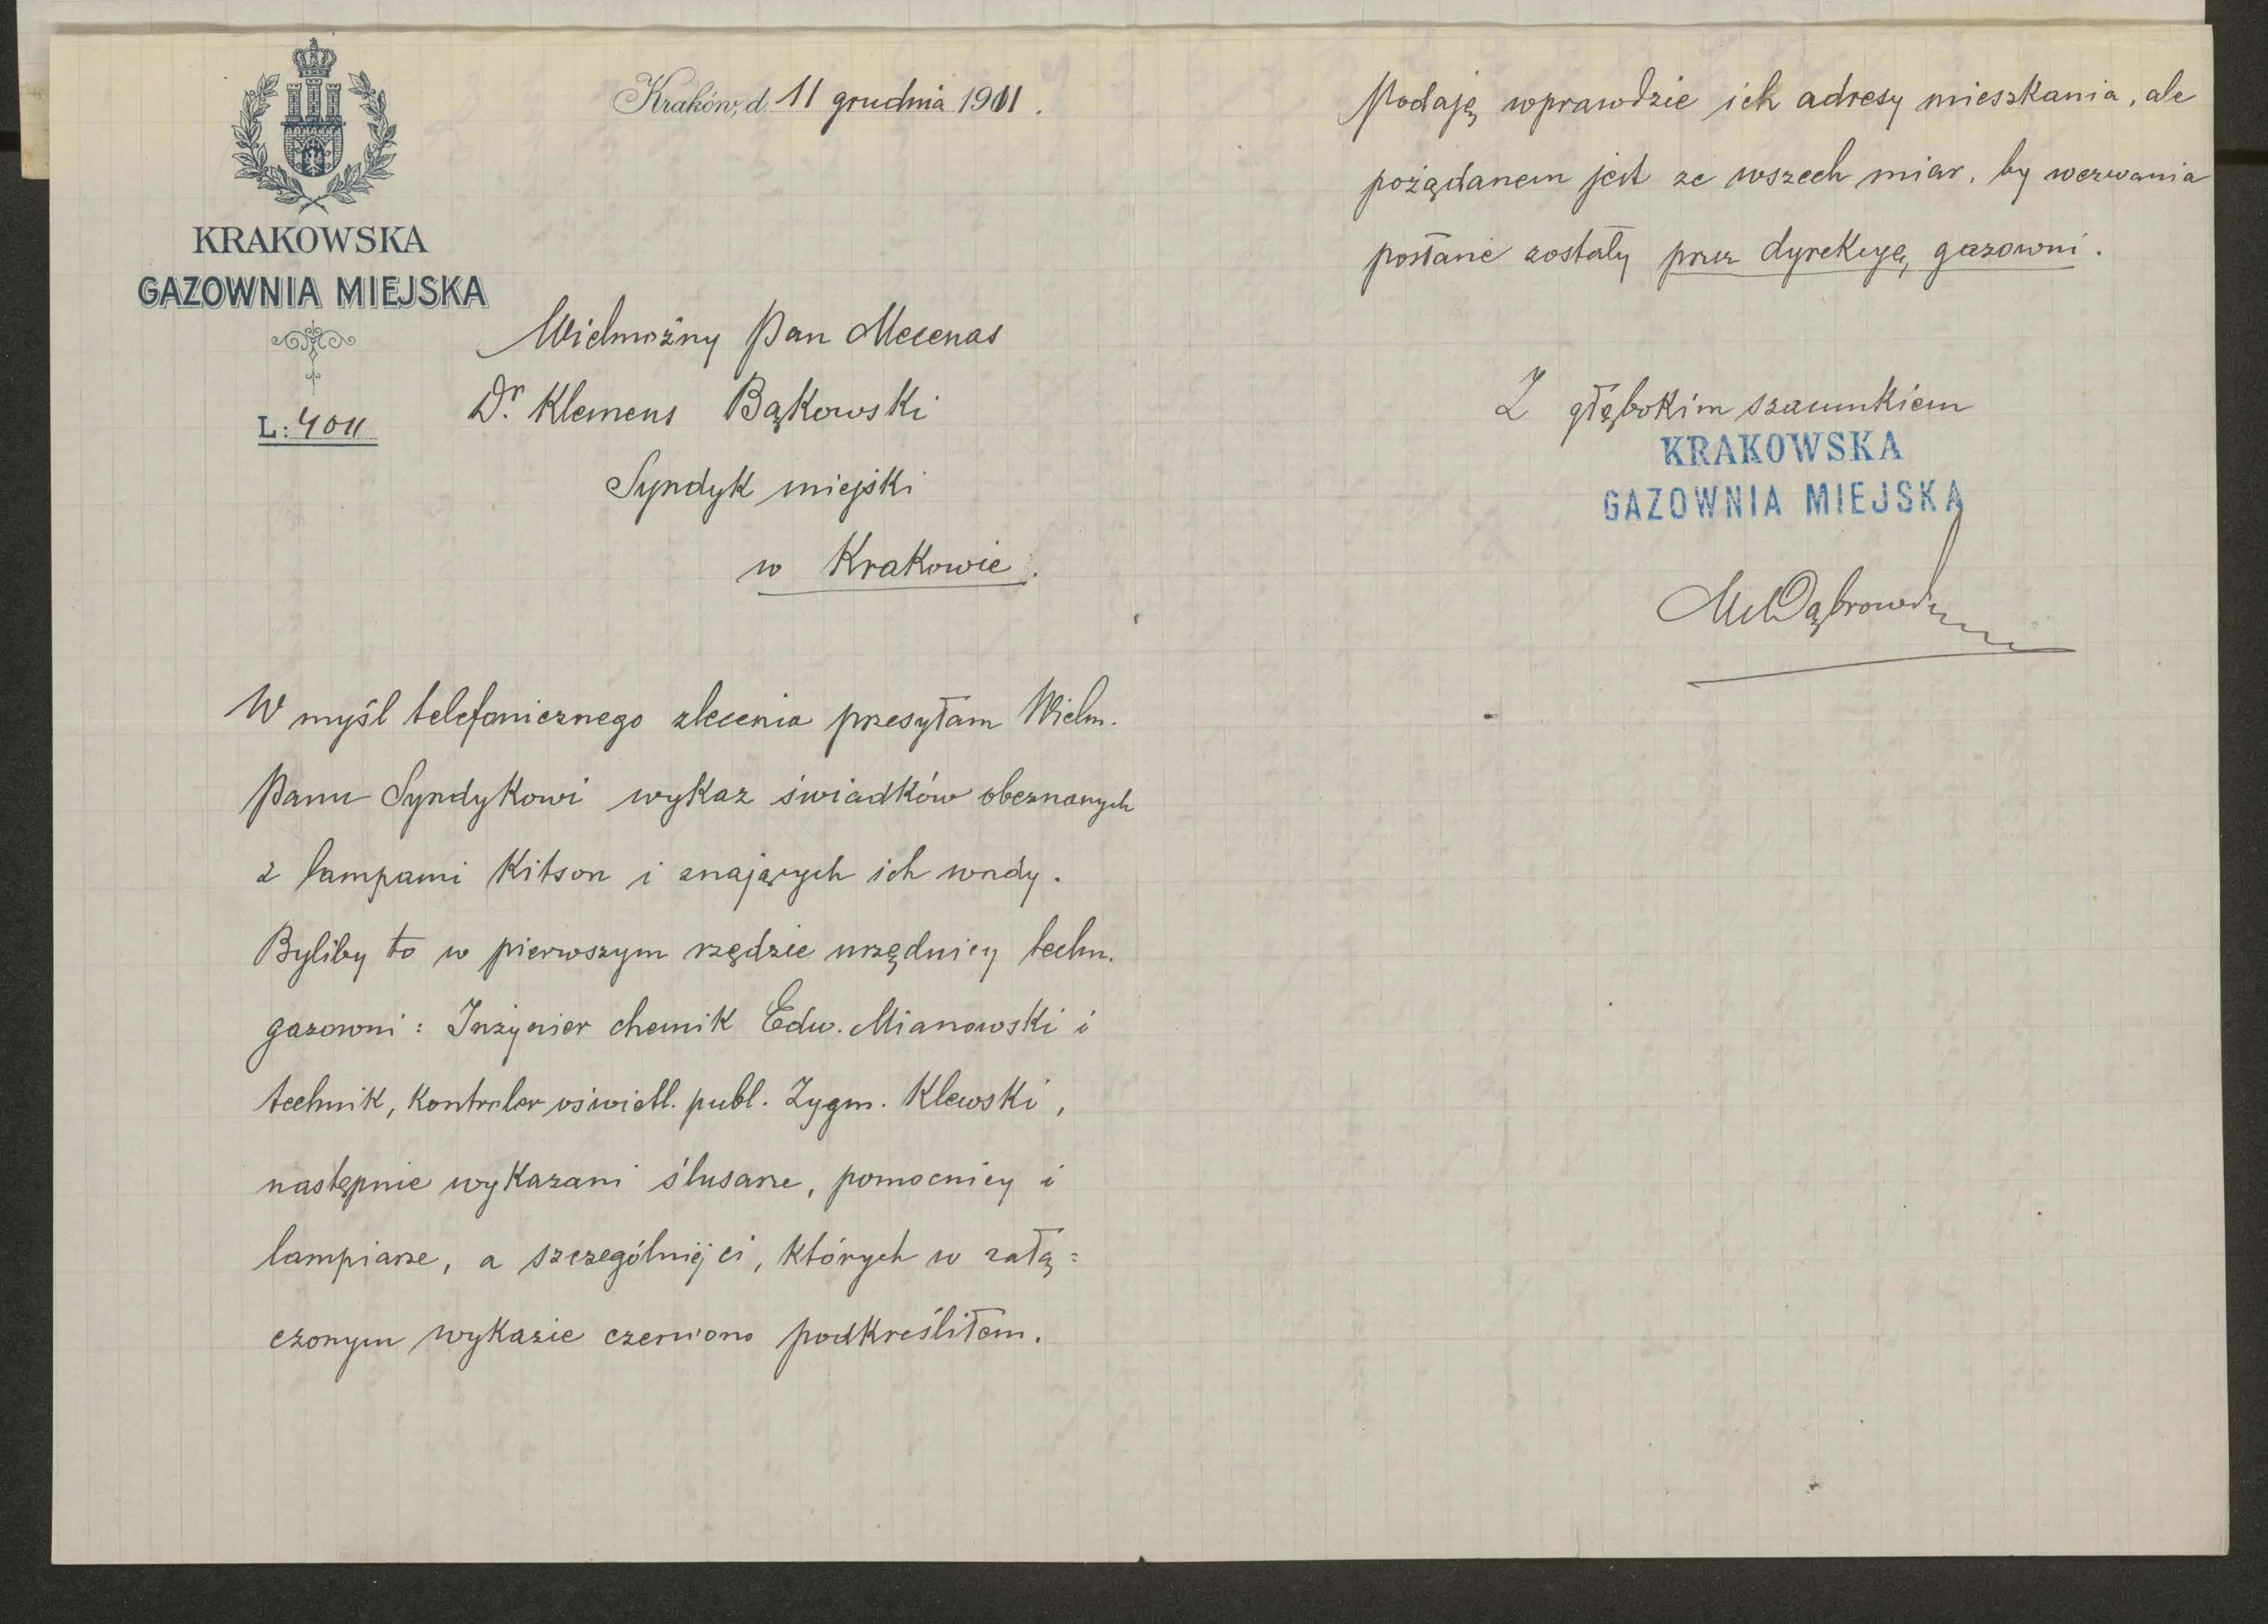 Kraków, d. 11 grudnia 1911.
KRAKOWSKA
GAZOWNIA MIEJSKA
L: 4011
Wielmożny Pan Mecenas
Dr. Klemens Bąkowski
Syndyk miejski
w Krakowie.
W myśl telefonicznego zlecenia przesyłam Wielm.
Panu Syndykowi wykaz świadków obeznanych
z lampami Kitson i znających ich wady.
Byliby to w pierwszym rzędzie urzędnicy techn.
gazowni: Inżynier chemik Edw. Mianowski i
technik, kontroler oświetl. publ. Zygm. Klewski,
następnie wykazani ślusarze, pomocnicy i
lampiarze, a szczególniej ci, których w załą=
czonym wykazie czerwono podkreśliłem.
Podaję wprawdzie ich adresy mieszkania, ale
pożądanem jest ze wszech miar, by wezwania
posłane zostały przez dyrekcyę gazowni.
Z głębokim szacunkiem
KRAKOWSKA
GAZOWNIA MIEJSKA
Dąbrowski